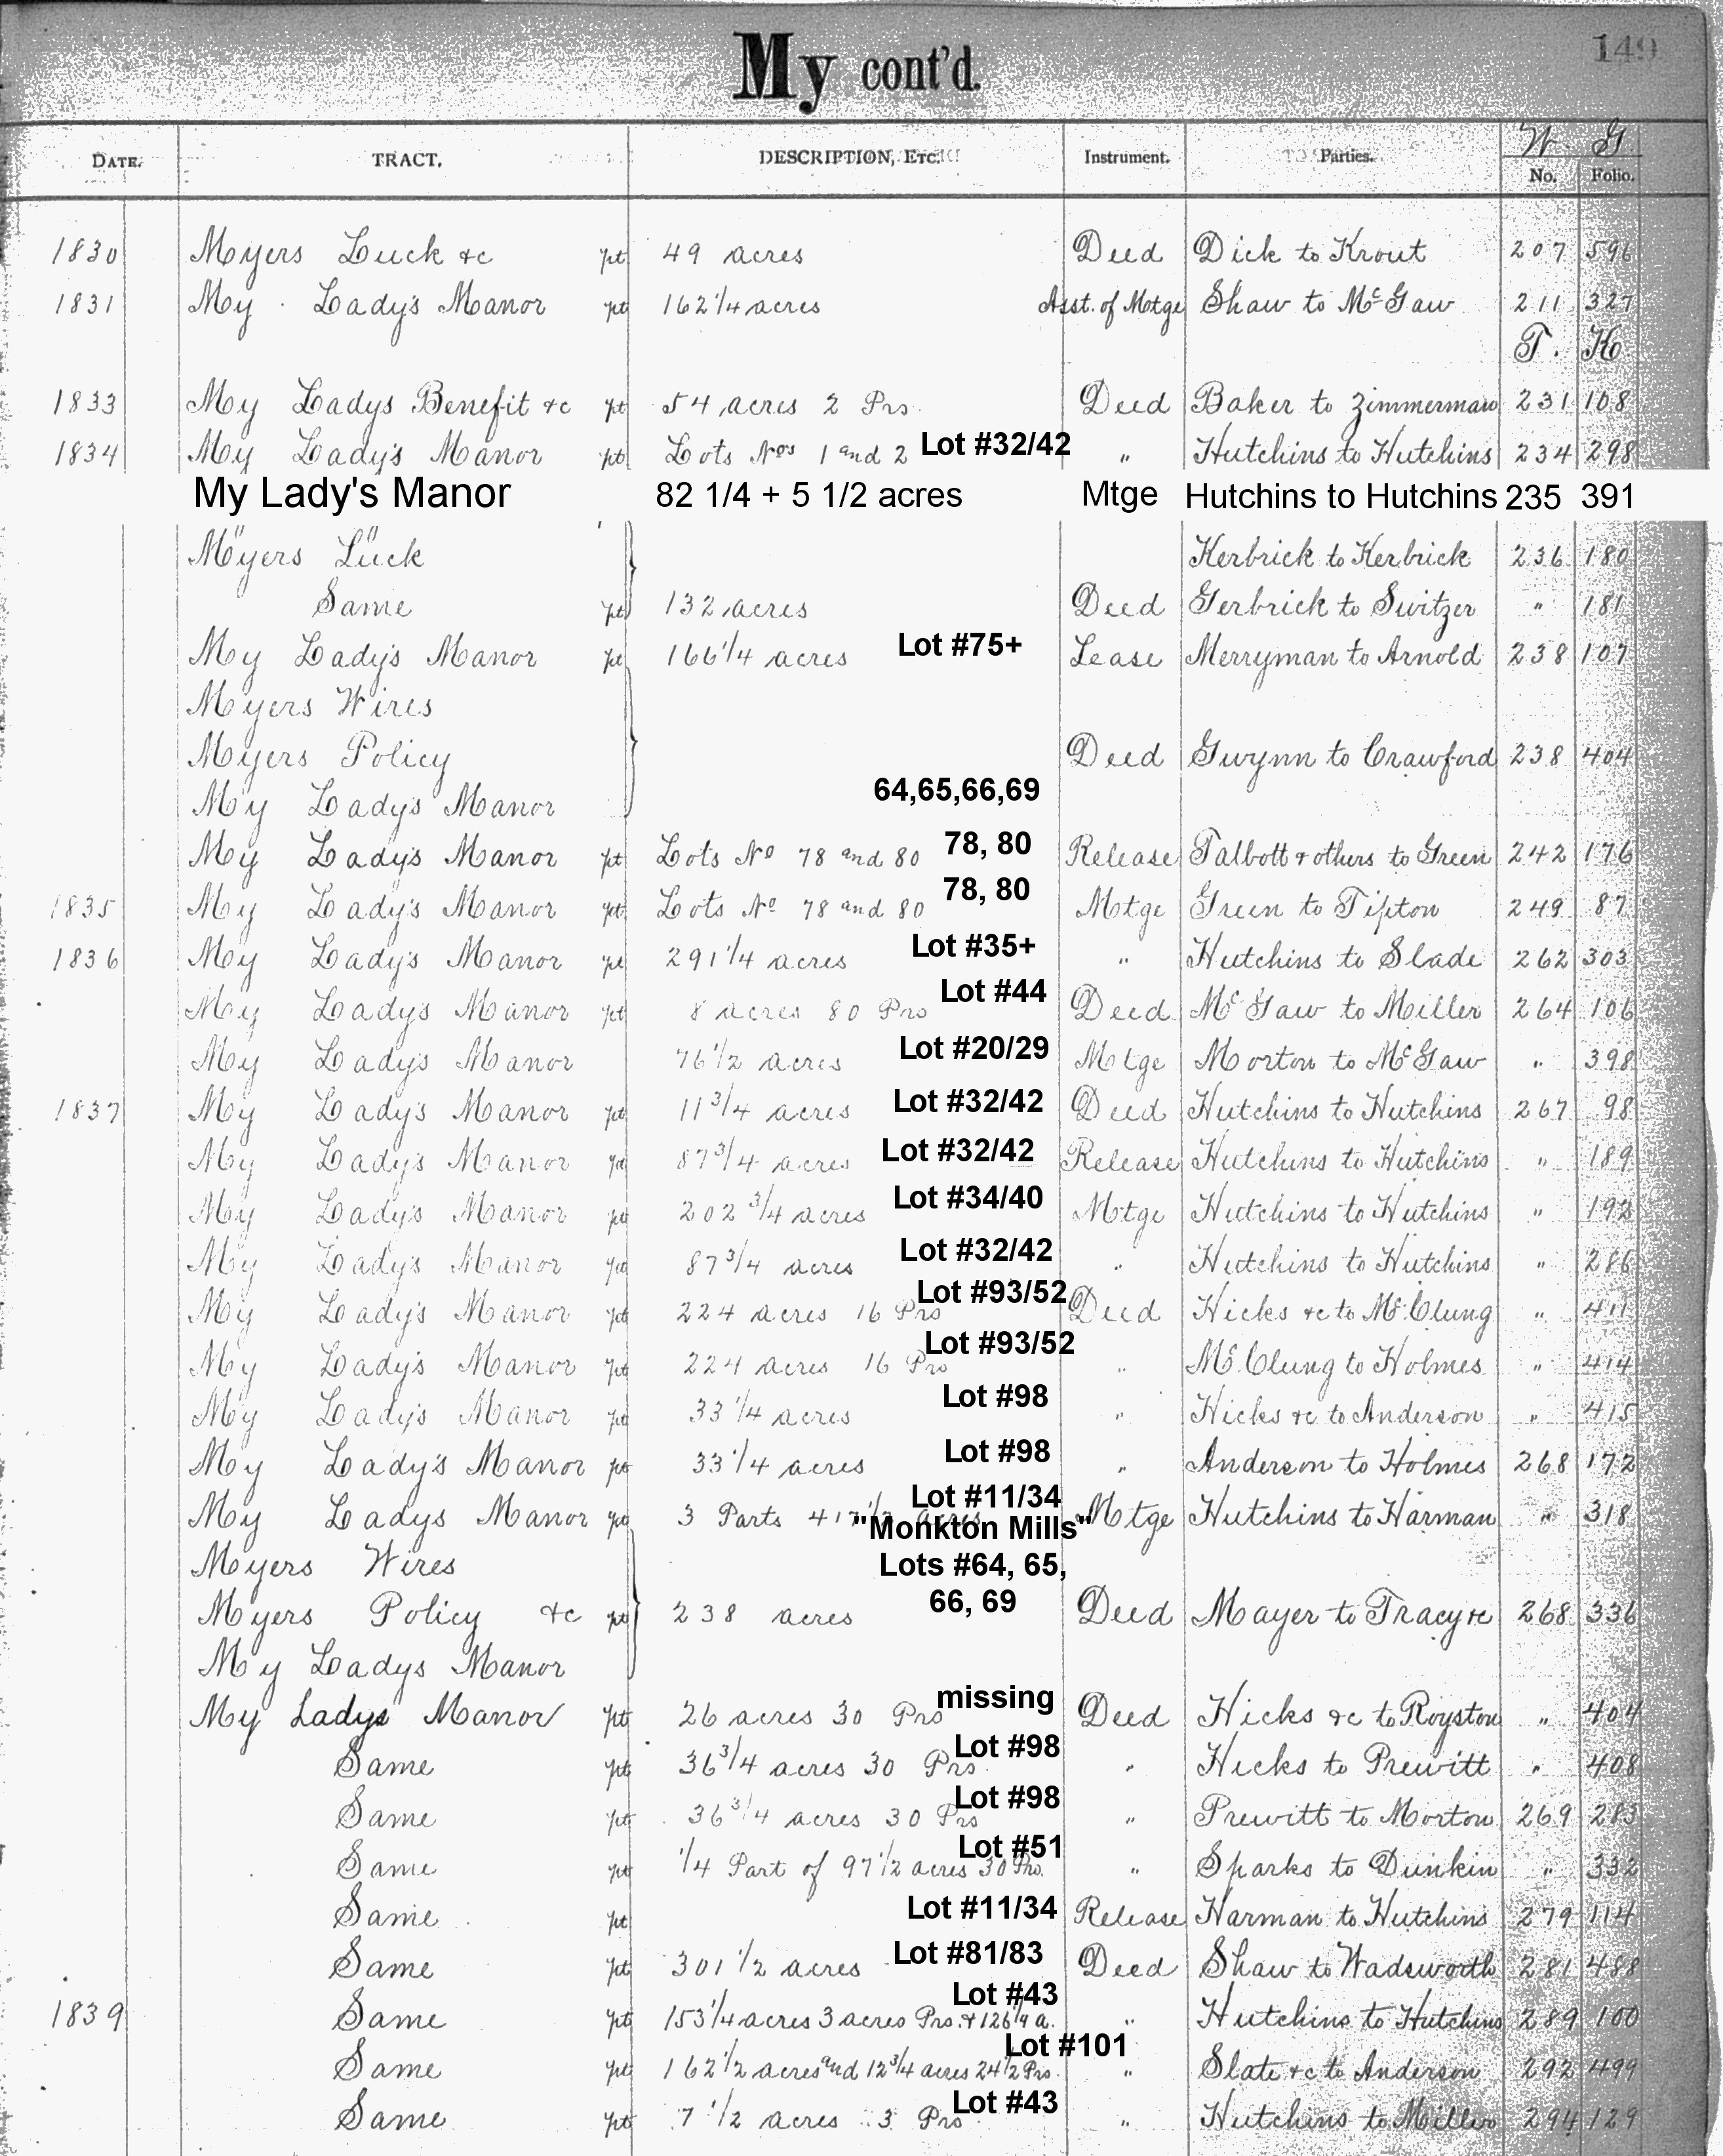 149
My cont'd.
DATE. TRACT. DESCRIPTION, ETC. Instrument. Parties. W G
No. Folio.
1830 Myers Luck &c pt 49 acres Deed Dick to Krout 207 596
1831 My Lady's Manor pt 162 1/4 acres Asst. of Motge Shaw to McGaw 211 327
T. K
1833 My Ladys Benefit &c pt 54 acres 2 Prs Deed Baker to Zimmerman 231 108
1834 My Lady's Manor pt Lots Nos 1 and 2 Lot #32/42 " Hutchins to Hutchins 234 298
My Lady's Manor 82 1/4 + 5 1/2 acres Mtge Hutchins to Hutchins 235 391
Myers Luck Kerbrick to Kerbrick 236 180
Same pt 132 acres Deed Gerbrick to Switzer " 181
My Lady's Manor pt 166 1/4 acres Lot #75+ Lease Merryman to Arnold 238 107
Myers Wires
Myers Policy Deed Gwynn to Crawford 238 404
My Lady's Manor 64,65,66,69
My Lady's Manor pt Lots No 78 and 80 78, 80 Release Talbott & others to Green 242 176
1835 My Lady's Manor pt Lots No 78 and 80 78, 80 Motge Green to Tipton 249 87
1836 My Lady's Manor pt 291 1/4 acres Lot #35+ " Hutchins to Slade 262 303
My Lady's Manor pt 8 acres 80 Prs Lot #44 Deed McGaw to Miller 264 106
My Lady's Manor 76 1/2 acres Lot #20/29 Motge Morton to McGaw " 398
1837 My Lady's Manor pt 11 3/4 acres Lot #32/42 Deed Hutchins to Hutchins 267 98
My Lady's Manor pt 87 3/4 acres Lot #32/42 Release Hutchins to Hutchins " 189
My Lady's Manor pt 202 3/4 acres Lot #34/40 Motge Hutchins to Hutchins " 192
My Lady's Manor pt 87 3/4 acres Lot #32/42 " Hutchins to Hutchins " 286
My Lady's Manor pt 224 acres 16 Prs Lot #93/52 Deed Hicks &c to McClung " 411
My Lady's Manor pt 224 acres 16 Prs Lot #93/52 " McClung to Holmes " 414
My Lady's Manor pt 33 1/4 acres Lot #98 " Hicks &c to Anderson " 415
My Lady's Manor pt 33 1/4 acres Lot #98 " Anderson to Holmes 268 172
My Ladys Manor pt 3 Parts 417 1/2 acres Lot #11/34 Motge Hutchins to Harman " 318
"Monkton Mills"
Myers Wires Lots #64, 65,
Myers Policy &c pt 238 acres 66, 69 Deed Mayer to Tracy &c 268 336
My Ladys Manor
My Ladys Manor pt 26 acres 30 Prs missing Deed Hicks &c to Royston " 404
Same pt 36 3/4 acres 30 Prs Lot #98 " Hicks to Prewitt " 408
Same pt 36 3/4 acres 30 Prs Lot #98 " Prewitt to Morton 269 283
Same pt 1/4 Part of 97 1/2 acres 30 Prs. Lot #51 " Sparks to Dunkin " 332
Same pt Lot #11/34 Release Harman to Hutchins 279 114
Same pt 301 1/2 acres Lot #81/83 Deed Shaw to Wadsworth 281 488
1839 Same pt 153 1/4 acres 3 acres Prs. & 126 1/4 a. Lot #43 " Hutchins to Hutchins 289 100
Same pt 162 1/2 acres and 12 3/4 acres 24 1/2 Prs. Lot #101 " Slate &c to Anderson 292 499
Same pt 7 1/2 acres 3 Prs Lot #43 " Hutchins to Miller 294 129